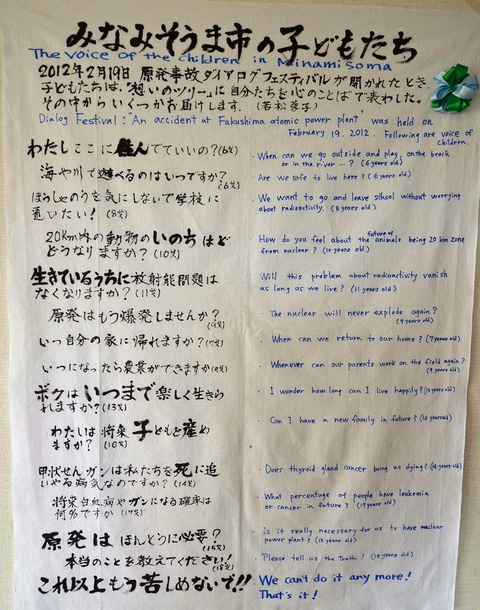 みなみそうま市の子どもたち
The voice of the children in Minami soma
2012年2月19日 原発事故ダイアログフェスティバルが開かれたとき
子どもたちは、"想いのツリー"に自分たちを心のことばで表わした。
その中からいくつかお届けします。(若松蓉子)
Dialog Festival: "An accident at Fukushima atomic power plant" was held on
February 19. 2012. Following are voice of
children.
わたしここに住んでていいの?(6才)
海や川で遊べるのはいつですか?
(6才)
ほうしゃのうを気にしないで学校に
通いたい! (8才)
20km内の動物のいのちはど
どうなりますか? (10才)
生きているうちに放射能問題は
なくなりますか? (11才)
原発はもう爆発しませんか?
(9才)
いつ自分の家に帰れますか? (7才)
いつになったら農業ができますか (9才)
ボクはいつまで楽しく生きら
れますか? (13才)
わたしは将来子どもを産め
ますか? (16才)
甲状せんガンは私たちを死に追
いやる病気なのですか? (14才)
将来白血病やガンになる確率は
何%ですか (17才)
原発はほんとうに必要?
(15才)
本当のことを教えてください!
(18才)
これ以上もう苦しめないで!!
・When can we go outside and play, on the beach
or in the river ...? (6 years old)
・Are we safe to live here? (6 years old)
・We want to go and leave school without worrying
about radioactivity. (8 years old)
・How do you feel about the future of animals being 20 km zone
from nuclear? (10 years old)
・Will this problem about radioactivity vanish
as long as we live? (11 years old)
・The nuclear will never explode again?
(9 years old)
・When can we return to our home? (7 years old)
・Whenever can our parents work on the field again?
(9 years old)
・I wonder how long can I live happily? (13 years old)
・Can I have a new family in future? (16 years old)
・Does thyroid gland cancer bring us dying? (14 years old)
・What percentage of people have leukemia
or cancer in future? (17 years old)
・Is it really necessary for us to have nuclear
power plant? (15 years old)
・Please tell us the Truth! (18 years old)
We can't do it any more!
That's it!